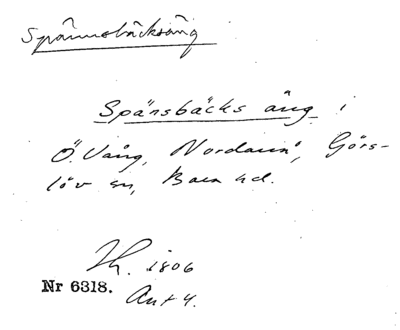 Spännsbäcksäng
Spänsbäcks äng i
Ö. Vång, Nordanå, Görs-
löv sn, Bara hd.
Lh. 1806
Nr 6318.
Akt 4.